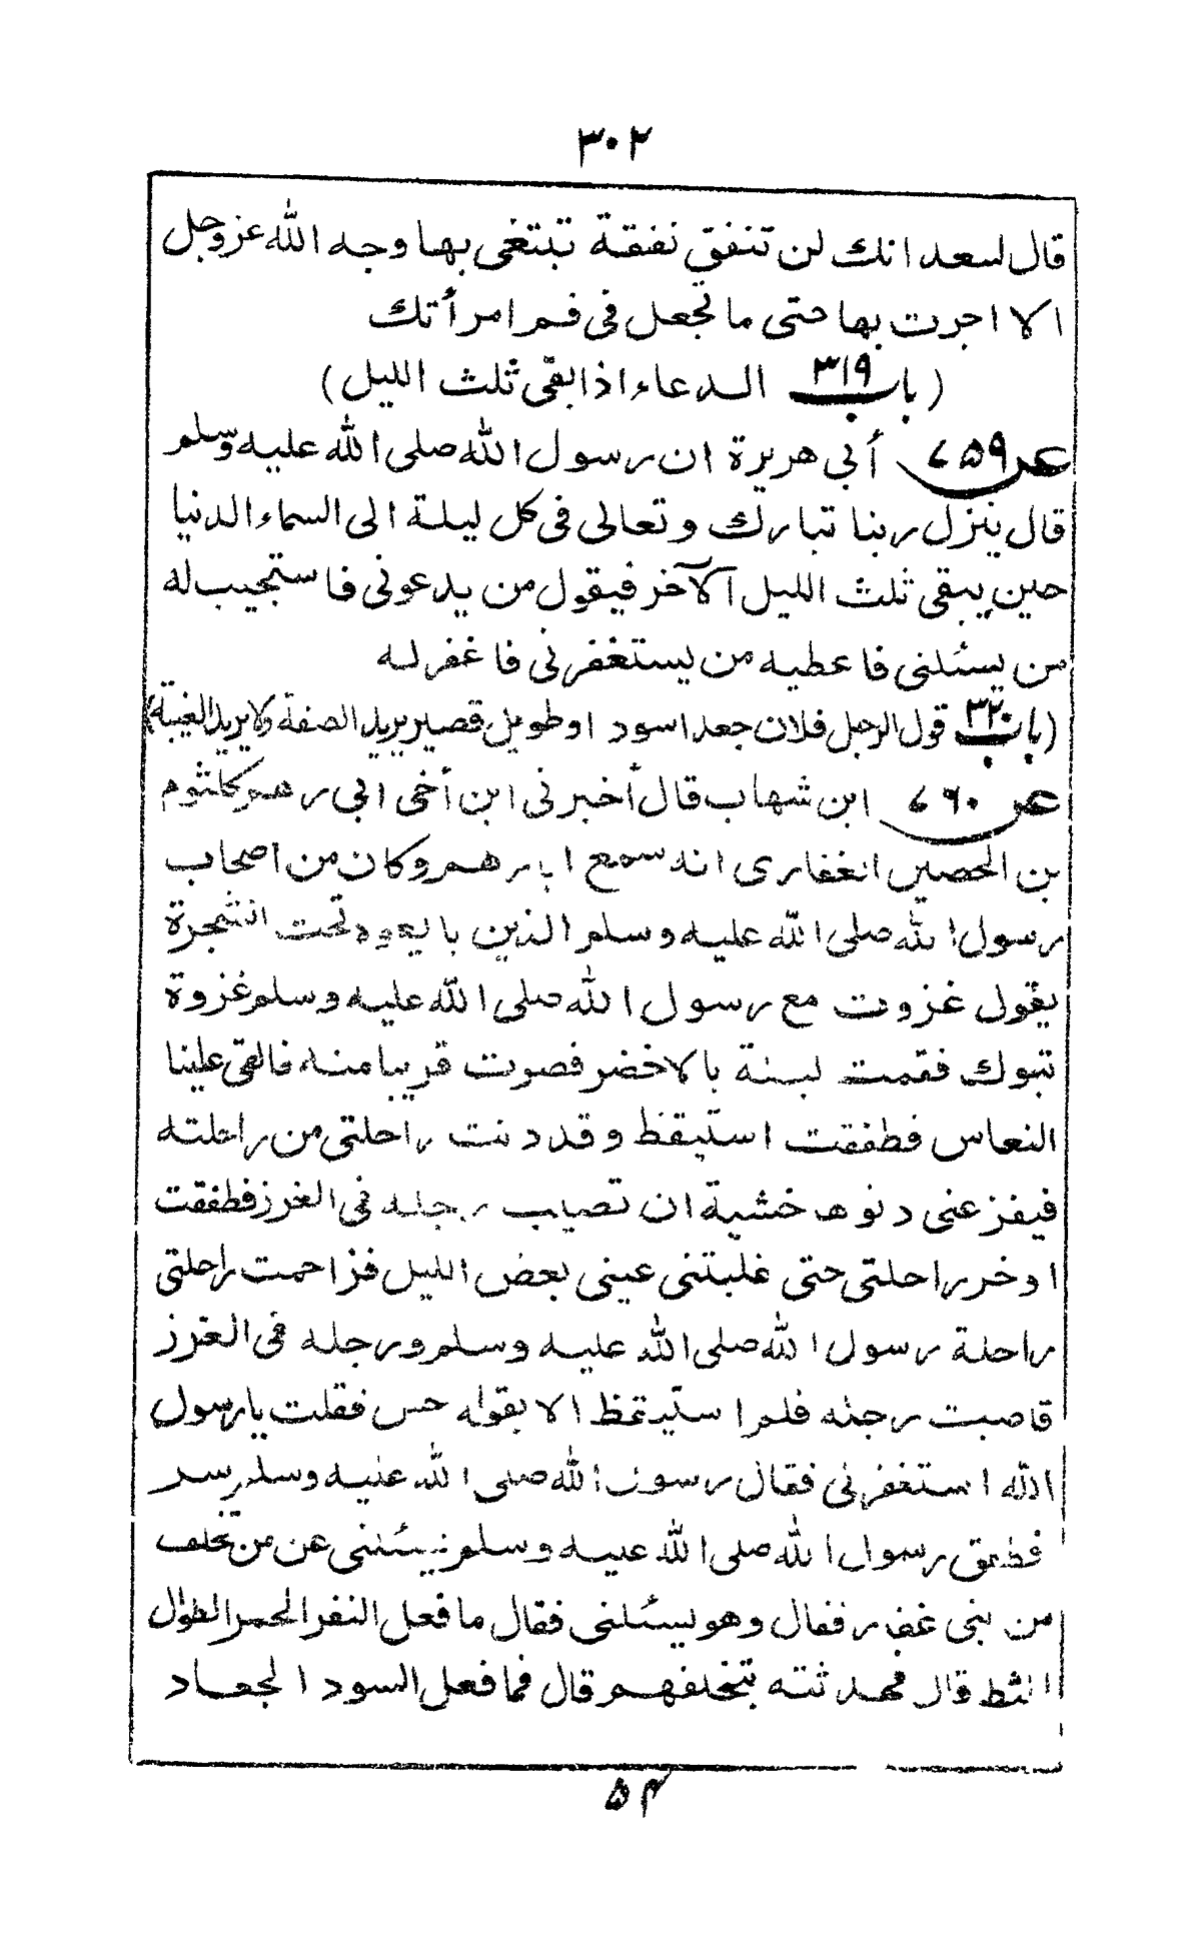 ٣٠٢
قال لسعد انك لن تنفق نفقة تبتغى بها وجه الله عز وجل
الا اجرت بها حتى ما تجعل فى فم امرأتك
(باب ٣١٩ الدعاء اذا بقى ثلث الليل)
عن ٧٥٩ أبى هريرة ان رسول الله صلى الله عليه وسلم
قال ينزل ربنا تبارك وتعالى فى كل ليلة الى السماء الدنيا
حين يبقى ثلث الليل الآخر فيقول من يدعونى فاستجيب له
من يسئلنى فاعطيه من يستغفرنى فاغفر له
(باب ٣٢٠ قول الرجل فلان جعد اسود او طويل قصير يريد الصفة ولا يريد الغيبة)
عن ٧٦٠ ابن شهاب قال أخبرنى ابن أخى ابى رهم كلثوم
بن الحصين الغفارى انه سمع ابا رهم وكان من اصحاب
رسول الله صلى الله عليه وسلم الذين بايعوه تحت الشجرة
يقول غزوت مع رسول الله صلى الله عليه وسلم غزوة
تبوك فقمت ليلة بالاخضر فصوت قريبا منه فالقى علينا
النعاس فطفقت استيقظ وقد دنت راحلتى من راحلته
فيفزعنى دنوها خشية ان تصيب رجله فى الغرز فطفقت
اوخر راحلتى حتى غلبتنى عينى بعض الليل فزاحمت راحلتى
راحلة رسول الله صلى الله عليه وسلم ورجله فى الغرز
فاصبت رجله فلم استيقظ الا بقوله حس فقلت يا رسول
الله استغفر لى فقال رسول الله صلى الله عليه وسلم سر
فطفق رسول الله صلى الله عليه وسلم يسئلنى عن من تخلف
من بنى غفار فقال وهو يسئلنى فقال ما فعل النفر الحمر الطوال
الثط قال فحدثته بتخلفهم قال فما فعل السود الجعاد
٥٤